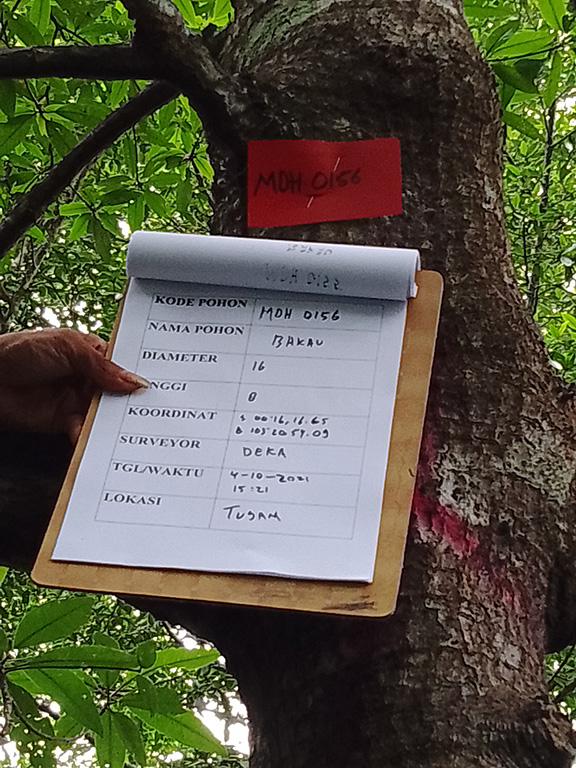 MDH 0156
KODE POHON MDH 0156
NAMA POHON BAKAU
DIAMETER 16
NGGI 8
KOORDINAT S 00.16, 16.65
B 105.20.59.09
SURVEYOR DEKA
TGL/WAKTU 4-10-2021
15:21
LOKASI